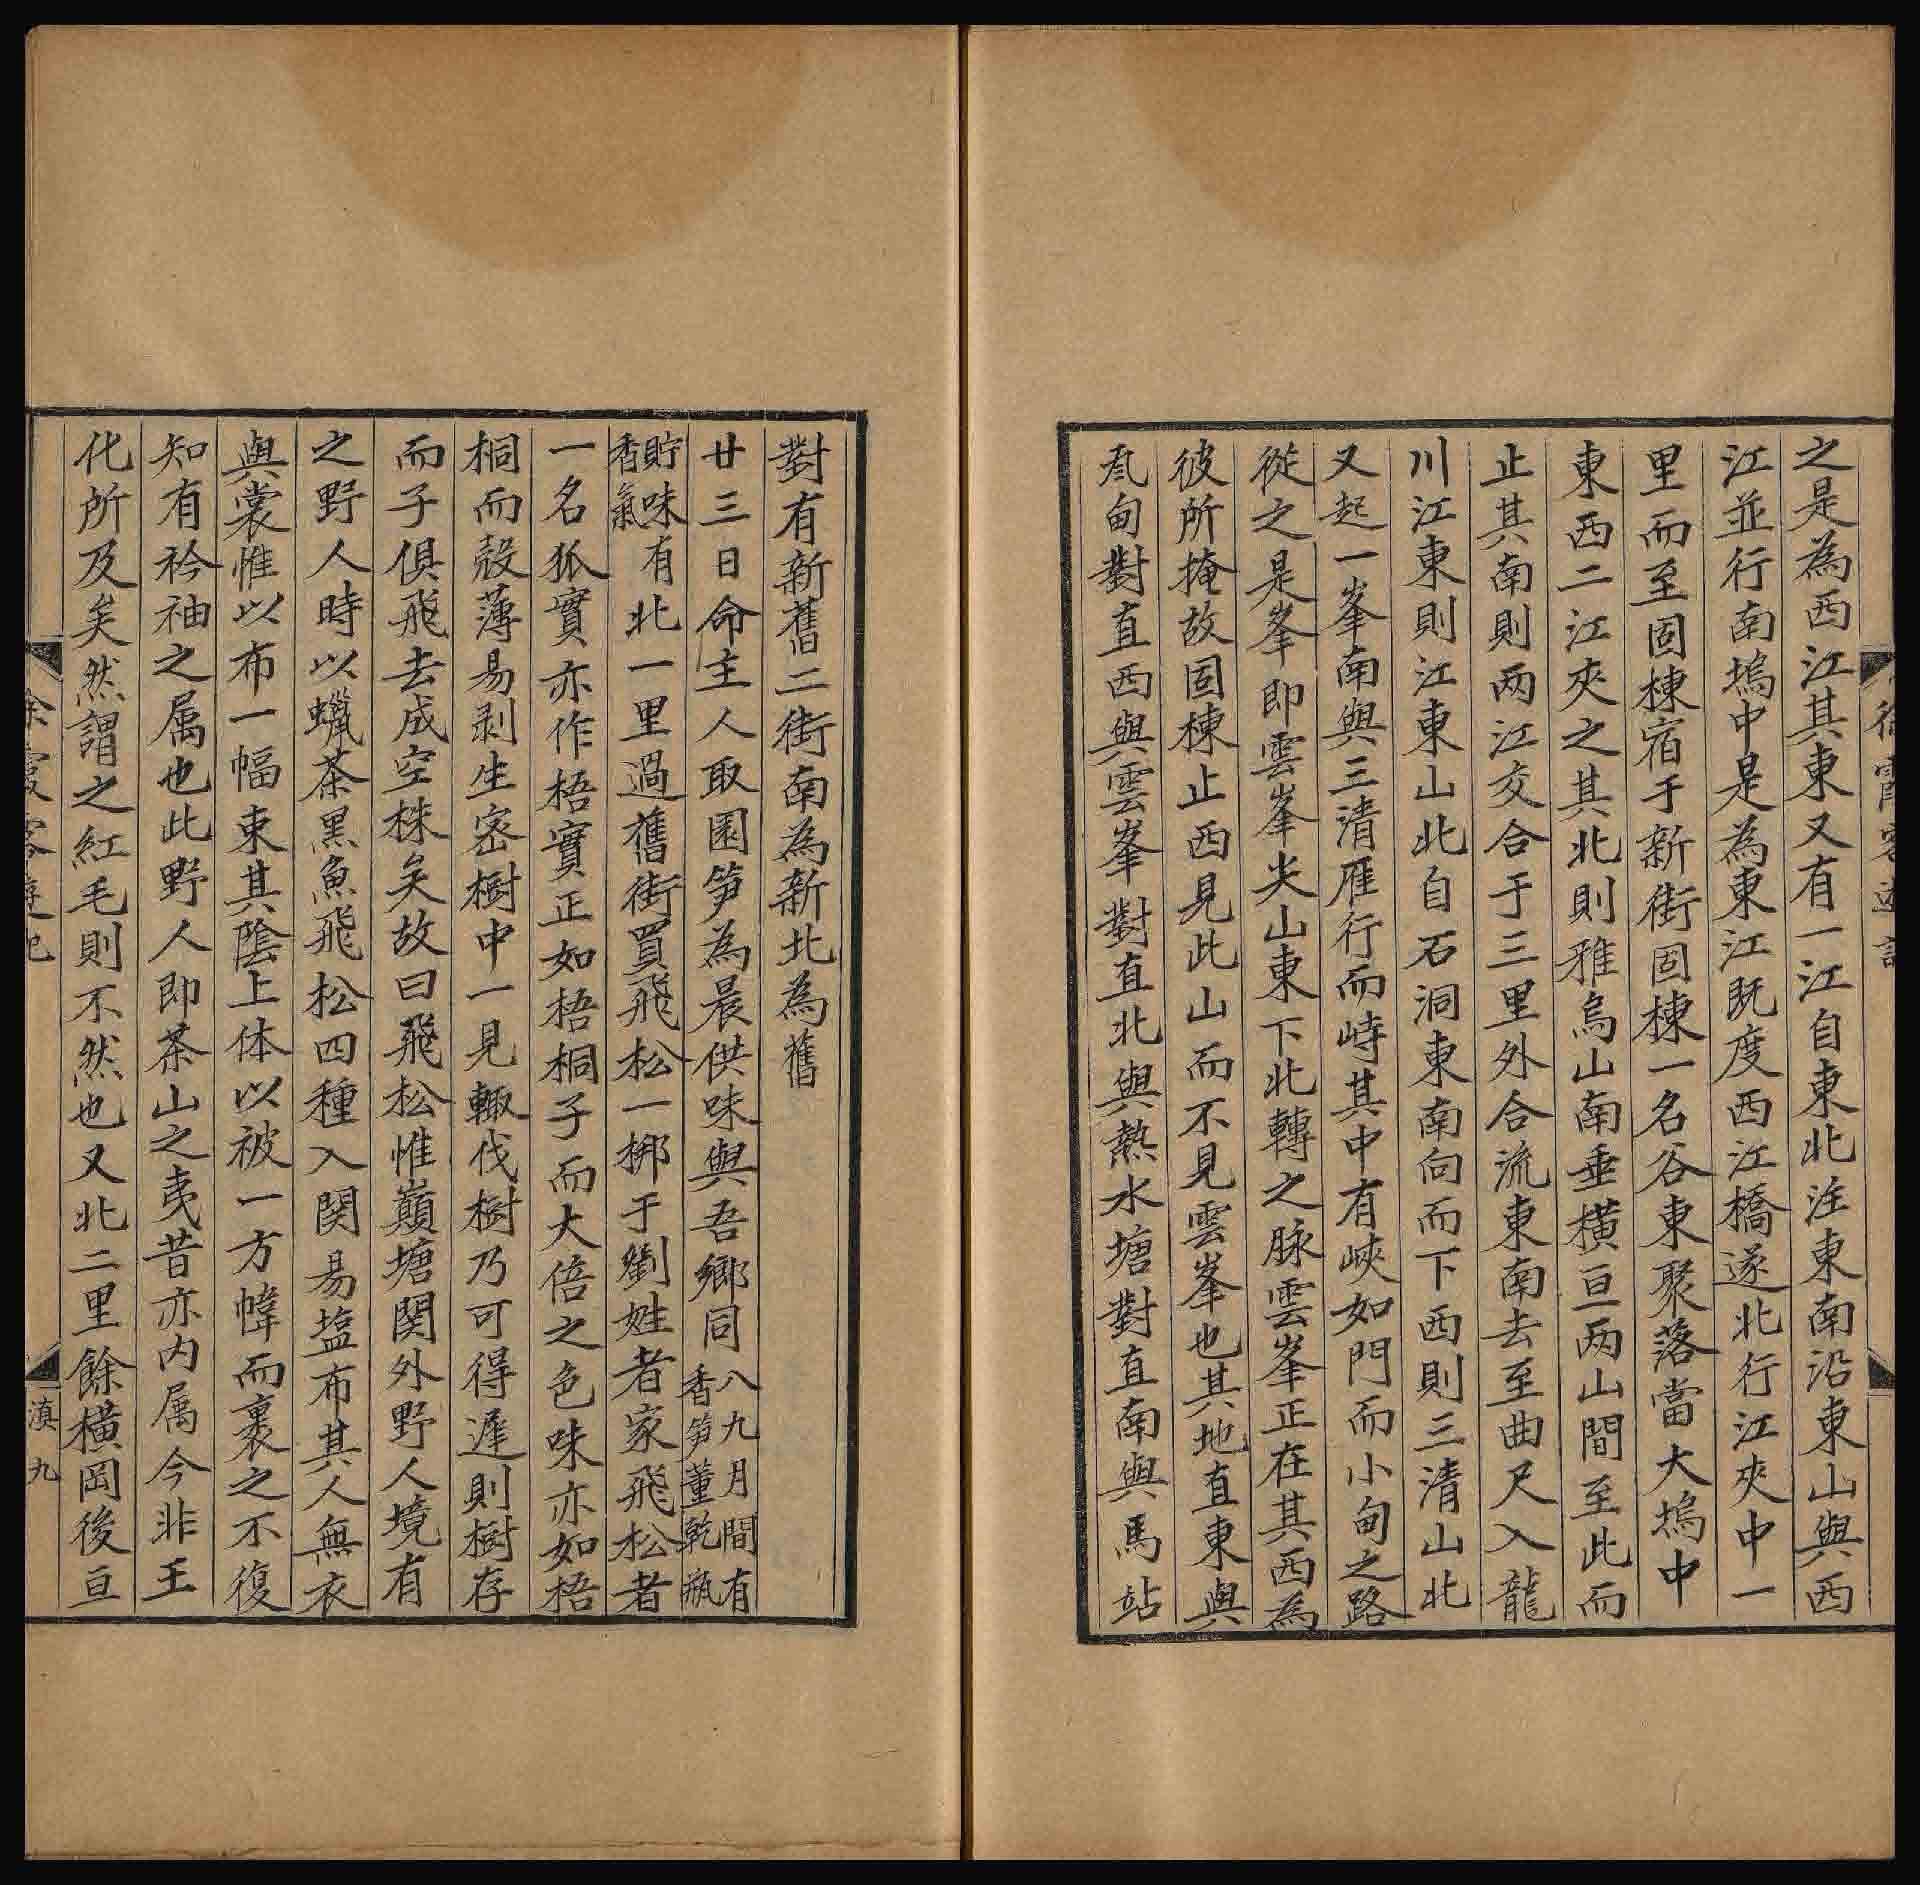 徐霞客遊記
之是為西江其東又有一江自東北注東南沿東山與西
江並行南塢中是為東江既度西江橋遂北行江夾中一
里而至固棟宿于新街固棟一名谷東聚落當大塢中
東西二江夾之其北則雅烏山南垂橫亘两山間至此而
止其南則两江交合于三里外合流東南去至曲尺入龍
川江東則江東山北自石洞東南向而下西則三清山北
又起一峯南與三清雁行而峙其中有峽如門而小甸之路
從之是峯即雲峯尖山東下北轉之脉雲峯正在其西為
彼所掩故固棟止西見此山而不見雲峯也其地直東與
甸對直西與雲峯對直北與熱水塘對直南與馬站
對有新舊二街南為新北為舊
廿三日命主人取園笋為晨供味與吾鄉同八九月間有
香笋薰乾瓶
貯味
香氣有北一里過舊街買飛松一梆于劉姓者家飛松者
一名狐實亦作梧實正如梧桐子而大倍之色味亦如梧
桐而殻薄易剥生密樹中一見輙伐樹乃可得遲則樹存
而子俱飛去成空株矣故曰飛松惟巔塘関外野人境有
之野人時以蠟茶黑魚飛松四種入関易塩布其人無衣
與裳惟以布一幅束其陰上体以被一方幃而裹之不復
知有衿袖之属也此野人即茶山之夷昔亦内属今非王
化所及矣然謂之紅毛則不然也又北二里餘橫岡後亘
徐霞客遊記
滇九